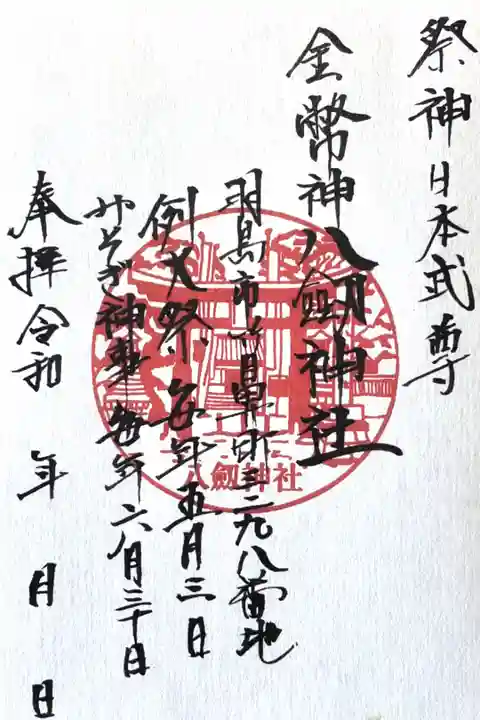 祭神日本武尊
金幣神八劔神社
羽島市竹鼻町三二九八番地
例大祭 毎年五月三日
みそぎ神事 毎年六月三十日
奉拝令和 年 月 日
八劔神社